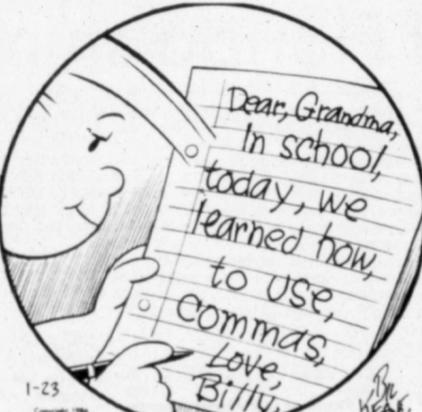 Dear, Grandma,
In school,
today, we
learned how,
to use,
commas,
Love,
Billy,
1-23